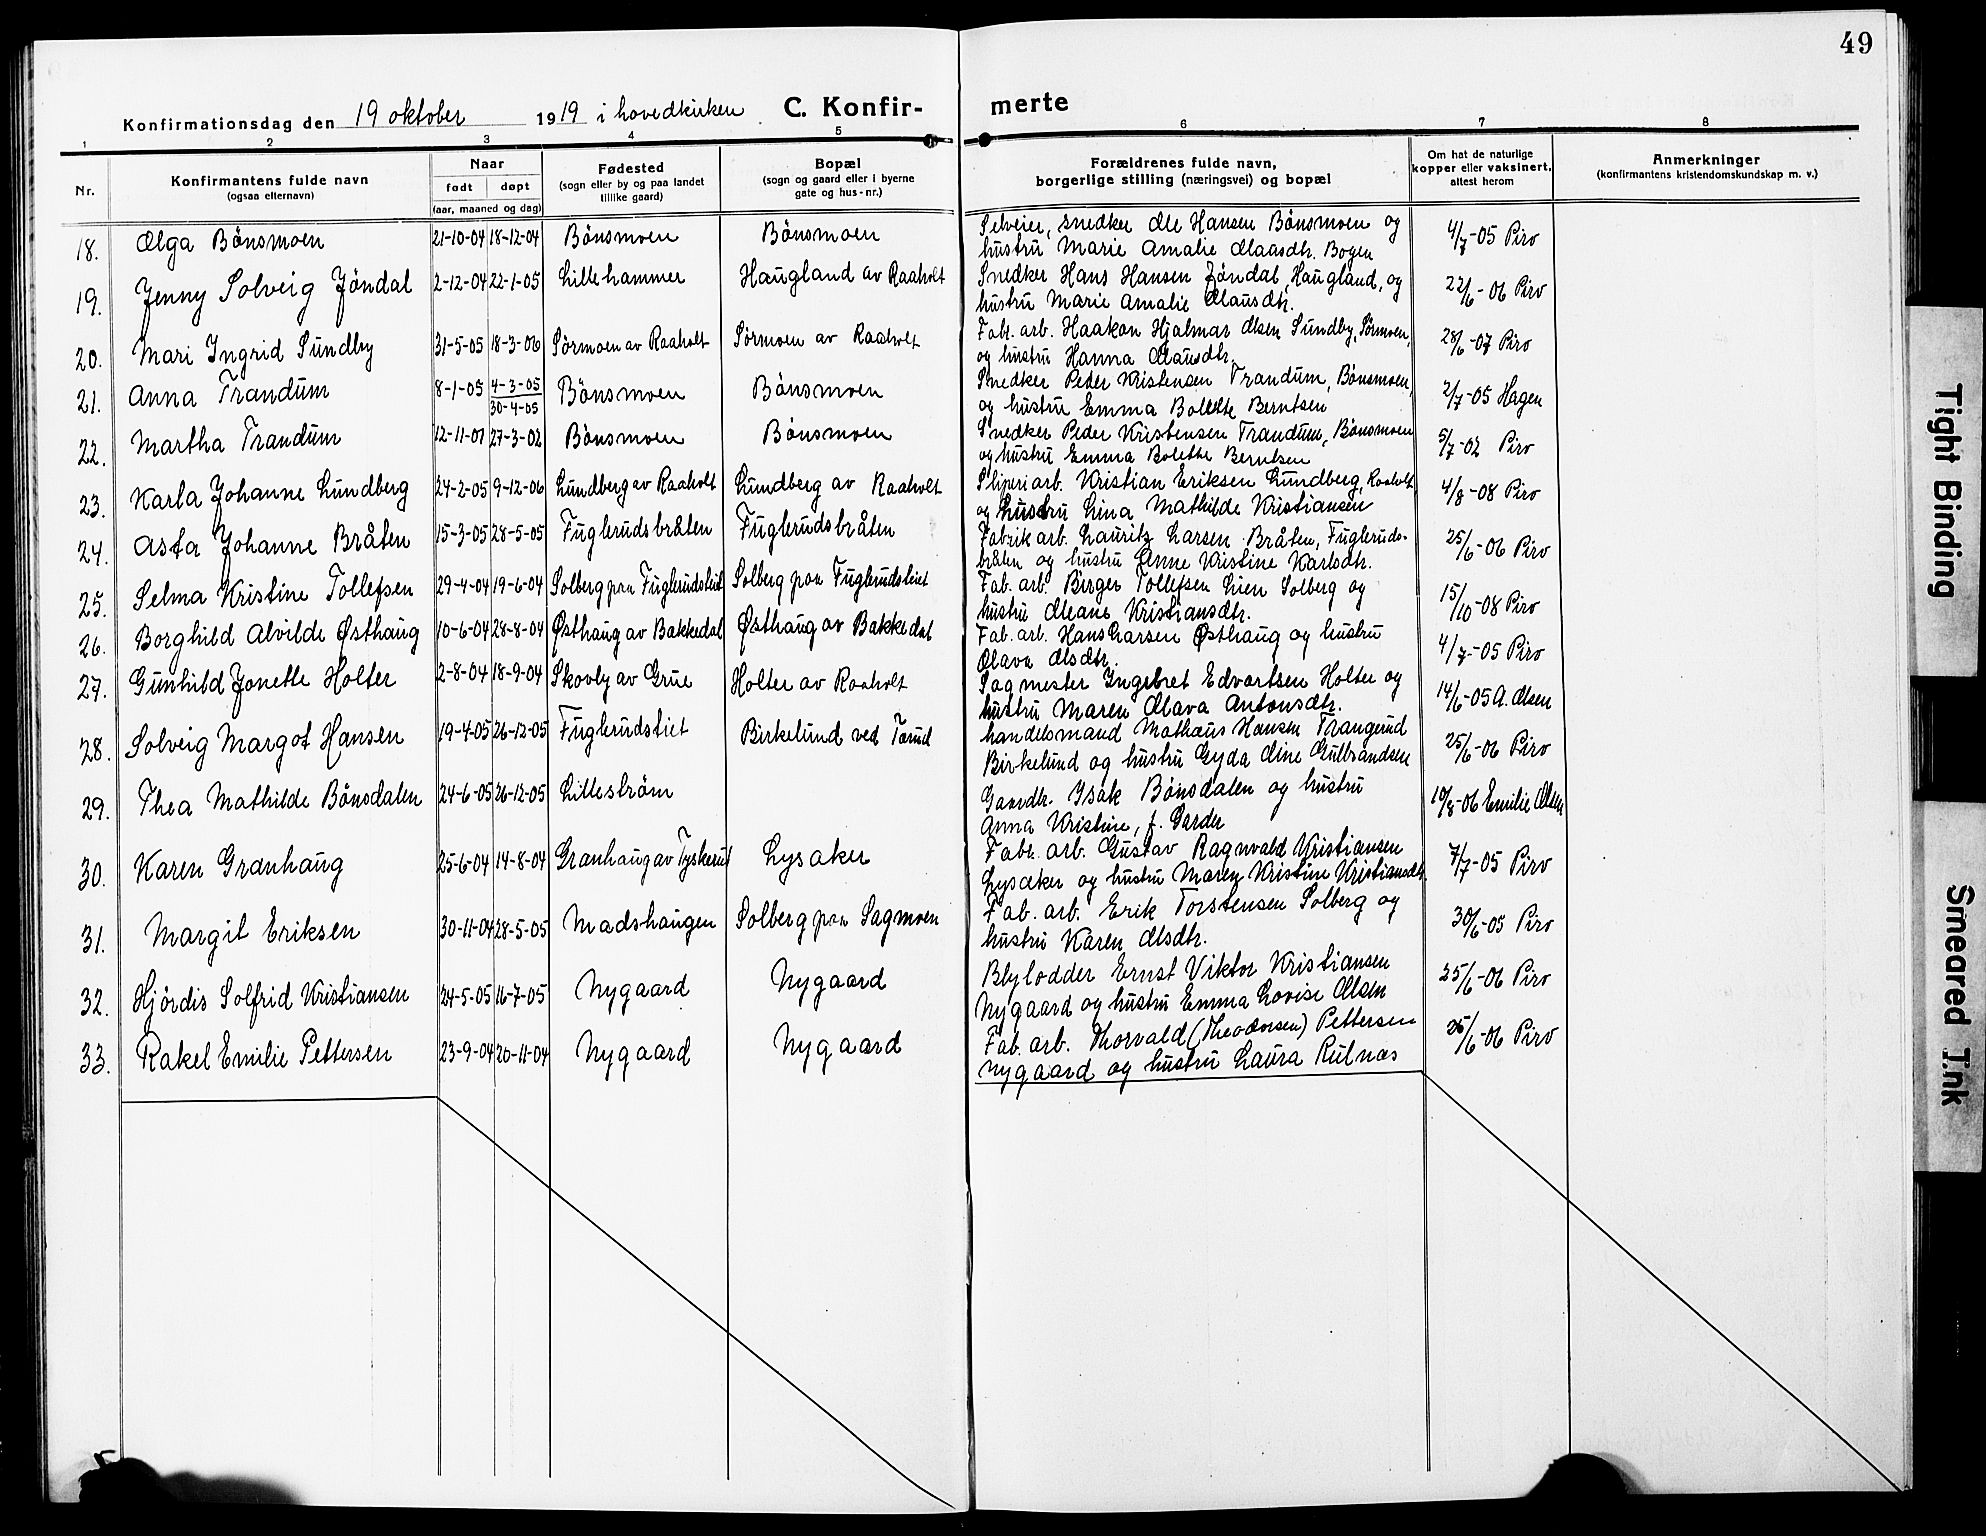 49
Konfirmationsdag den 19 oktober 1919 i hovedkirken C. Konfir- merte
1 2 3 4 5 6 7 8
Nr.
Konfirmantens fulde navn
(ogsaa efternavn)
Naar
født døpt
(aar, maaned og dag)
Fødested
(sogn eller by og paa landet
tillike gaard)
Bopæl
(sogn og gaard eller i byerne
gate og hus-nr.)
Forældrenes fulde navn,
borgerlige stilling (næringsvei) og bopæl
Om hat de naturlige
kopper eller vaksinert,
attest herom
Anmerkninger
(konfirmantens kristendomskundskap m. v.)
18. Olga Bönsmoen 21-10-04 18-12-04 Bönsmoen Bönsmoen Selveier, snedker Ole Hansen Bönsmoen og 4/7-05 Piro
hustru Marie Amalie Olaasdtr. Bogen
19. Jenny Solveig Jöndal 2-12-04 22-1-05 Lillehammer Haugland av Raaholt Snedker Hans Hansen Jöndal, Haugland, og 22/6-06 Piro
hustru Marie Amalie Olausdtr.
20. Mari Ingrid Sundby 31-5-05 18-3-06 Sörmoen av Raaholt Sörmoen av Raaholt Fabr. arb. Haakon Hjalmar Olsen Sundby, Sörmoen, 28/6-07 Piro
og hustru Hanna Olausdtr.
21. Anna Trandum 8-1-05 4-3-05 Bönsmoen Bönsmoen Snedker Peder Kristensen Trandum, Bönsmoen, 2/7-05 Hagen
30-4-05 og hustru Emma Bolette Berntsen
22. Martha Trandum 12-11-01 27-3-02 Bönsmoen Bönsmoen Snedker Peder Kristensen Trandum, Bönsmoen 5/7-02 Piro
og hustru Emma Bolette Berntsen
23. Karla Johanne Lundberg 24-2-05 9-12-06 Lundberg av Raaholt Lundberg av Raaholt Sliperiarb. Kristian Eriksen Lundberg, Raaholt 4/8-08 Piro
og hustru Lina Mathilde Kristiansen
24. Asta Johanne Bråten 15-3-05 28-5-05 Fuglerudsbråten Fuglerudsbråten Fabrikarb. Lauritz Larsen Bråten, Fugleruds- 25/6-06 Piro
bråten og hustru Anne Kristine Karlsdtr.
25. Selma Kristine Tollefsen 29-4-04 19-6-04 Solberg paa Fuglerudsleiet Solberg paa Fuglerudsleiet Fab. arb. Birger Tollefsen Lien Solberg og 15/10-08 Piro
hustru Oleane Kristiansdtr.
26. Borghild Alvilde Østhaug 10-6-04 28-8-04 Østhaug av Bakkedal Østhaug av Bakkedal Fab. arb. Hans Larsen Østhaug og hustru 4/7-05 Piro
Olava Olsdtr.
27. Gunhild Jonette Holter 2-8-04 18-9-04 Skovby av Grue Holter av Raaholt Sagmester Ingebret Edvartsen Holter og 14/6-05 A. Olsen
hustru Maren Olava Antonsdtr.
28. Solveig Margot Hansen 19-4-05 26-12-05 Fuglerudsliet Birkelund ved Tærud handelsmand Mathæus Hansen Trangerud 25/6-06 Piro
Birkelund og hustru Gyda Oline Gulbrandsen
29. Thea Mathilde Bönsdalen 24-6-05 26-12-05 Lilleström Gaardbr. Isak Bönsdalen og hustru 19/8-06 Emilie Olsen
Anna Kristine, f. Garder
30. Karen Granhaug 25-6-04 14-8-04 Granhaug av Tyskerud Lysaker Fabr. arb. Gustav Ragnvald Kristiansen 7/7-05 Piro
Lysaker og hustru Maren Kristine Kristiansdtr.
31. Margit Eriksen 30-11-04 28-5-05 Madshaugen Solberg paa Sagmoen Fab. arb. Erik Torstensen Solberg og 30/6-05 Piro
hustru Karen Olsdtr.
32. Hjördis Solfrid Kristiansen 24-5-05 16-7-05 Nygaard Nygaard Blylodder Ernst Viktor Kristiansen 25/6-06 Piro
Nygaard og hustru Emma Lovise Olsen
33. Rakel Emilie Pettersen 23-9-04 20-11-04 Nygaard Nygaard Fab. arb. Thorvald (Theodorsen) Pettersen 25/6-06 Piro
Nygaard og hustru Laura Rulnæs
Tight Binding
Smeared Ink